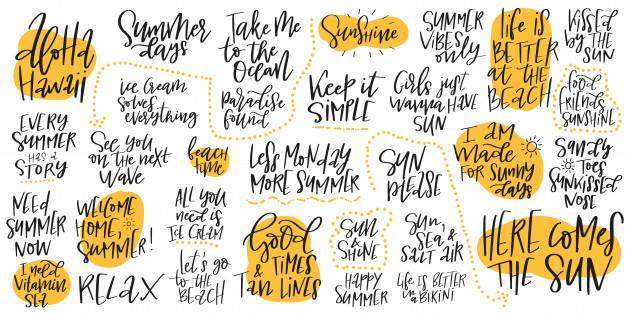 Aloha
Hawaii
Summer
days
Take me
to the
Ocean
Sunshine
SUMMER
ViBES
only
life is
BETTER
at the
BEACH
kissed
by the
SUN
ice cream
solves
everything
paradise
found
Keep it
SIMPLE
Girls just
wanna HAVE
SUN
food
FRiENDS
SUNSHINE
EVERY
SUMMER
HAS A
STORY
See you
on the next
WAVE
beach
time
Less Monday
MORE SUMMER
SUN
PLEASE
I am
made
FOR Sunny
days
Sandy
TOES
Sunkissed
NOSE
NEED
SUMMER
NOW
WELCOME
HOME,
SUMMER!
ALL you
need is
ICE CREAM
Good
TIMES
& TAN LINES
SUN
&
SHINE
Sun,
SEA &
SALT AIR
HERE COMES
THE SUN
I need
Vitamin
Sea
RELAX
Let's go
to the
BEACH
HAPPY
SUMMER
Life is BETTER
in a BIKINI